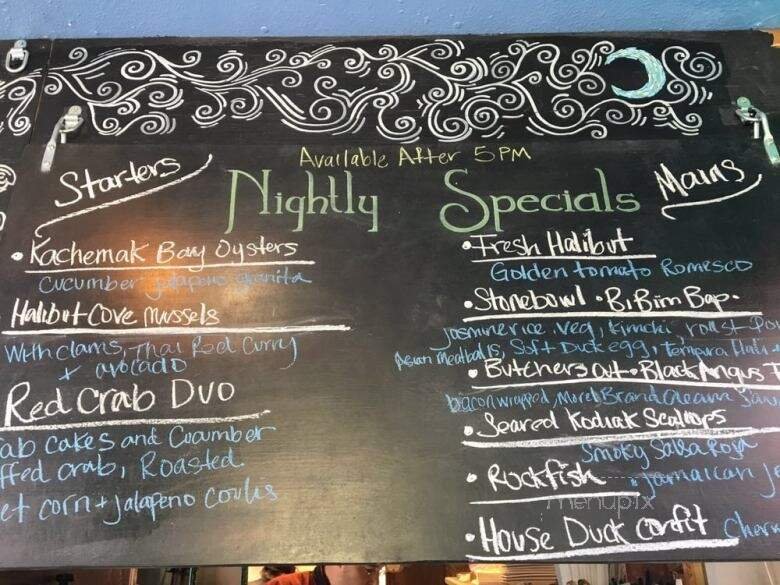 Available After 5PM
Nightly Specials
Starters
• Kachemak Bay Oysters
Cucumber jalapeno granita
Halibut Cove Mussels
With clams, Thai Red Curry
+ avocado
Red Crab Duo
ab cakes and Cucumber
ffed crab, Roasted
et corn + jalapeno coulis
Mains
• Fresh Halibut
Golden tomato Romesco
• Stonebowl • Bi Bim Bap •
Jasmine rice, veg, Kimchi, roast
Asian meatballs, Soft Duck egg, tempura
• Butchers Cut • Black Angus
bacon wrapped, Morel Brandy Cream
• Seared Kodiak Scallops
Smoky Salsa Roja
• Rockfish • Jamaican J
menupix
• House Duck Confit Cherr